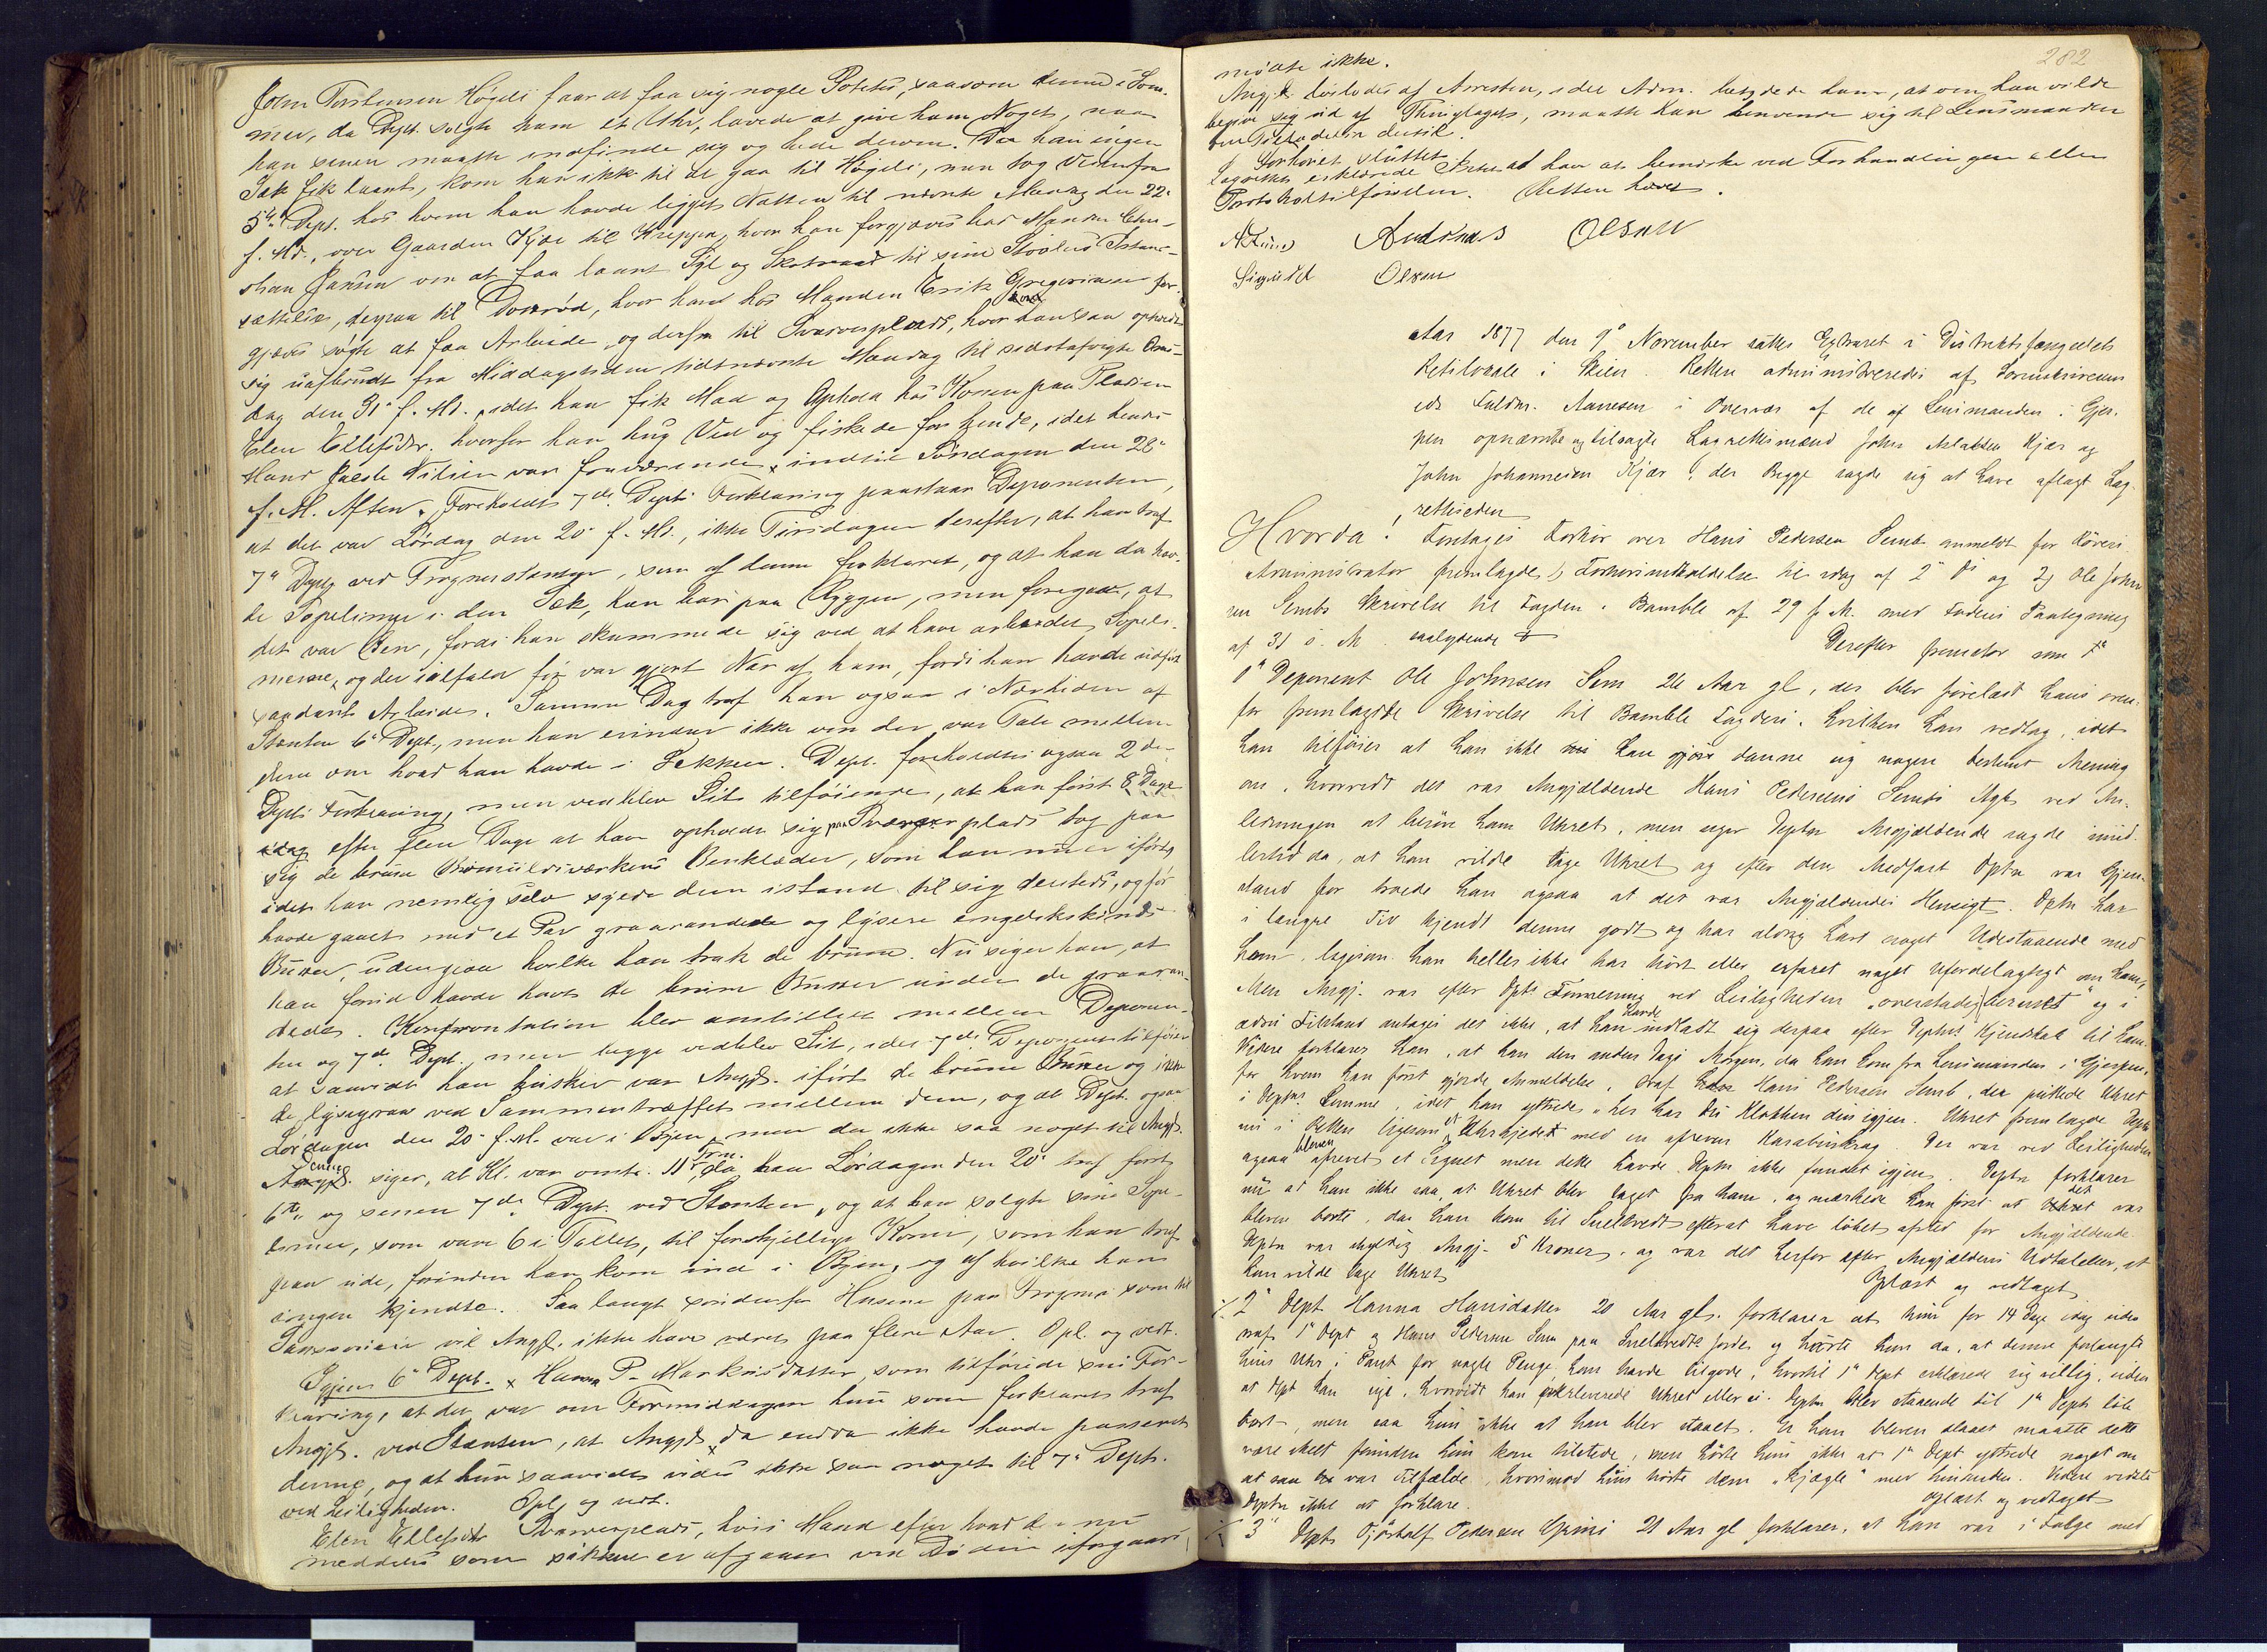 John Torstensen Høgeli faar at faa sig nogle Poteter, saasom denne i Som-
mer, da Dept. solgte ham et Uhr, lovede at give ham Noget, naar
han senere maatte indfinde sig og bede derom. Da han ingen
Sæk fik laant, kom han ikke til at gaa til Høgeli, men tog derfra
5te Dept. hos hvem han havde ligget Natten til næste Mandag den 22
f. Md., over Gaarden Kjær til Kreppa, hvor han forgjæves bad Manden Chri-
stian Jansen om at faa laant Syl og Skotraad til sine Støvlers Istand-
sættelse, derpaa til Dverrød, hvor han hos Manden Erik Gregersen for-
gjæves søgte at faa Arbeide, og derfra til Svarverplads, hvor han saa opholdt
sig uafbrudt fra Middagstiden sidstnævnte Mandag til sidstafvigte Ons-
dag den 31 f. Md., idet han fik Mad og Ophold hos Konen paa Pladsen
Elen Ellefsdtr. hvorfor han hug Ved og fiskede for hende, idet hendes
Mand Jacob Nilsen var fraværende indtil Søndagen den 28
f. M. Aften. Foreholdt 7de Depts Forklaring paastaar Deponenten,
at det var Lørdag den 20 f. Md., ikke Tirsdagen derefter, at han traf
7de Dept. ved Frognerstanger, som af denne forklaret, og at han da hav-
de Sopelimer i den Sæk, han bar paa Ryggen, men foregav, at
det var Ben, fordi han skammede sig ved at have arbeidet Sopeli-
merne, og der ialfald før var gjort Nar af ham, fordi han havde udført
saadant Arbeide. Samme Dag traf han ogsaa i Nærheden af
Stenten 6te Dept., men han erindrer ikke om der var Tale mellem
dem om hvad han havde i Sækken. Dept. foreholdtes ogsaa 2de
Depts Forklaring, men vedblev Sit tilføiende, at han først 8 Dage
efter flere Dage at have opholdt sig paa Svarverplads tog paa
sig de brune Bomuldsværkens Benklæder, som han nu er iført,
idet han nemlig selv syede dem istand til sig dersteds, og før
havde gaaet med et Par graarandede og lysere engelskskinds
Buxer, udenpaa hvilke han trak de brune. Nu siger han, at
han forud havde havt de brune Buxer under de graaran-
dede. Konfrontation blev anstillet mellem Deponen-
ten og 7de Dept., men begge vedblev Sit, idet 7de Deponent tilføier
at saavidt han husker var Angjd. iført de brune Buxer og ikke
de lysegraa ved Sammentræffet mellem dem, og at Dept. ogsaa
Lørdagen den 20 f. M. var i Byen, men da ikke saa noget til Angjd.
Denne siger, at Kl. var omtr. 11 Frm. da han Lørdagen den 20 traf først
6te og senere 7de Dept. ved Stenten, og at han solgte sine Sope-
limer, som vare 6 i Tallet, til forskjellige Koner, som han traf
paa ude, forinden han kom ind i Byen, og af hvilke han
ingen kjendte. Saa langt søndenfor Husene paa Frogner som til
vil Angjd. ikke have været paa flere Aar. Opl. og vedt.
Igjen 6te Dept. Hanna P. Markusdatter, som tilføiede sin For-
klaring, at det var om Formiddagen hun som forklaret traf
Angjd. ved Stenten, at Angjd. da endda ikke havde passeret
denne, og at hun saavidt vides ikke saa noget til 7de Dept.
ved Leiligheden. Opl. og vedt.
Elen Ellefsdtr Svarverplads, hvis Mand efter hvad der nu
meddeles som sikkert er afgaaet ved Døden iforgaars
282
mødte ikke.
Angjd. løslodes af Arresten, idet Adm. betydede ham, at om han vilde
begive sig ud af Thinglaget, maatte han henvende sig til Lensmanden
om Tilladelse dertil.
Forhøret sluttet.
Lagrettet erklærede Intet at have at bemærke ved Forhandlingen eller
Protokoltilførselen. Retten hævet.
Andreas Olsen
Sigurd Olsen
Aar 1877 den 9 November sattes Extraret i Distriktsfængslets
Retslokale i Skien. Retten administreredes af Sorenskriveren
ved Fuldm. Aanesen i Overvær af de af Lensmanden i Gjer-
pen opnævnte og tilsagte Lagrettesmænd John Aslaksen Kjær og
John Johannesen Kjær, der Begge sagde sig at have aflagt Lag-
retteseden
Hvorda! Foretages Forhør over Hans Pedersen Semb anmeldt for Røveri
Administrator fremlagde 1) Forhørsindkaldelse til idag af 2 ds og 2) Ole John-
sen Sembs Skrivelse til Fogden i Bamble af 29 f. M. med Fogdens Paategning
af 31 s. M. saalydende
Derefter fremstod som
1ste Deponent Ole Johnsen Sem 26 Aar gl, der blev forelæst hans oven-
for fremlagte Skrivelse til Bamble Fogderi, hvilken han vedtog, idet
han tilføier at han ikke nu kan gjøre danne sig nogen bestemt Mening
om, hvorvidt det var Angjældende Hans Pedersens Sembs Agt ved An-
ledningen at berøve ham Uhret, men siger Deptn Angjældende sagde imid-
lertid da, at han vilde tage Uhret og efter den Medfart Dptn var Gjen-
stand for troede han ogsaa at det var Angjældendes Hensigt. Dptn har
i længre Tid kjendt denne godt og har aldrig havt noget Udestaaende med
ham, ligesom han heller ikke har hørt eller erfaret noget ufordelagtigt om ham,
Men Angj. var efter Dpts Formening ved Leiligheden "overstadig beruset" og i
ædru Tilstand antages det ikke, at han havde indladt sig derpaa efter Deptns Kjendskab til ham
Videre forklarer han, at han den anden Dags Morgen, da han kom fra Lensmanden i Gjerpen,
for hvem han først gjorde Anmeldelse, traf Hans Pedersen Semb, der puttede Uhret
i Deptns Lomme, idet han yttrede "her har du Klokken din igjen". Uhret fremlagde Deptn
nu i Retten ligesom et Uhrkjede med en afreven Karabinkrog. Der var ved Leiligheden
ogsaa bleven afrevet et Signet men dette havde Deptn ikke fundet igjen. Deptn forklarer
nu at han ikke saa, at Uhret blev taget fra ham, og mærkede han først at det var
bleven borte, da han kom til Snelkvedt efterat have løbet afsted for Angjældende.
Deptn var skyldig Angj. 5 Kroner, og var det herfor efter Angjældens Udtalelser, at
han vilde tage Uhret
Oplæst og vedtaget
2den Dept. Hanna Hansdatter 20 Aar gl. forklarer at hun for 14 Dage idag siden
traf 1ste Dept og Hans Pedersen Sem paa Snelkvedts Jorde og hørte hun da, at denne forlangte
hins Uhr i Pant for nogle Penge, han havde tilgode, hvortil 1ste Dept erklærede sig villig, uden
at Dept kan sige, hvorvidt han overleverede Uhret eller ei. Deptn blev staaende til 1ste Dept løb
bort, men saa hun ikke at han blev slaaet. Er han bleven slaaet maatte dette
være skeet forinden hun kom tilstede, men hørte hun ikke at 1ste Dept yttrede noget om
at saa var Tilfælde, hvorimod hun hørte dem "kjægle" med hinanden. Videre vidste
Deptn ikke at forklare.
oplæst og vedtaget
3die Dept. Tjøstolf Pedersen Grini 21 Aar gl forklarer, at han var i Følge med